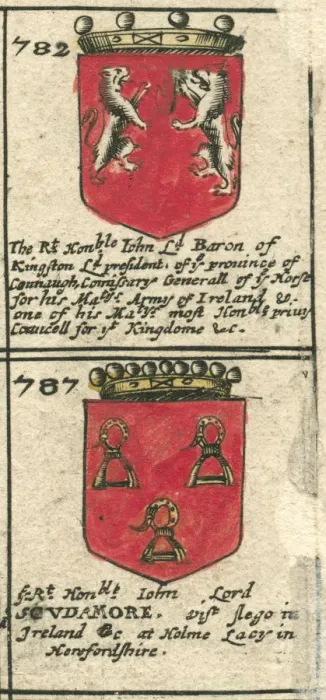 782
The Rt Honble Iohn Ld Baron of
Kingston Ld president, of ye province of
Connaugh, Comissary Generall of ye Horse
for his Matys Army of Ireland &
one of his Matys most Honble privy
Councell for yt Kingdome &c.
787
ye Rt Honble Iohn Lord
SCVDAMORE, vist slego in
Ireland &c at Holme Lacy in
Herefordshire.